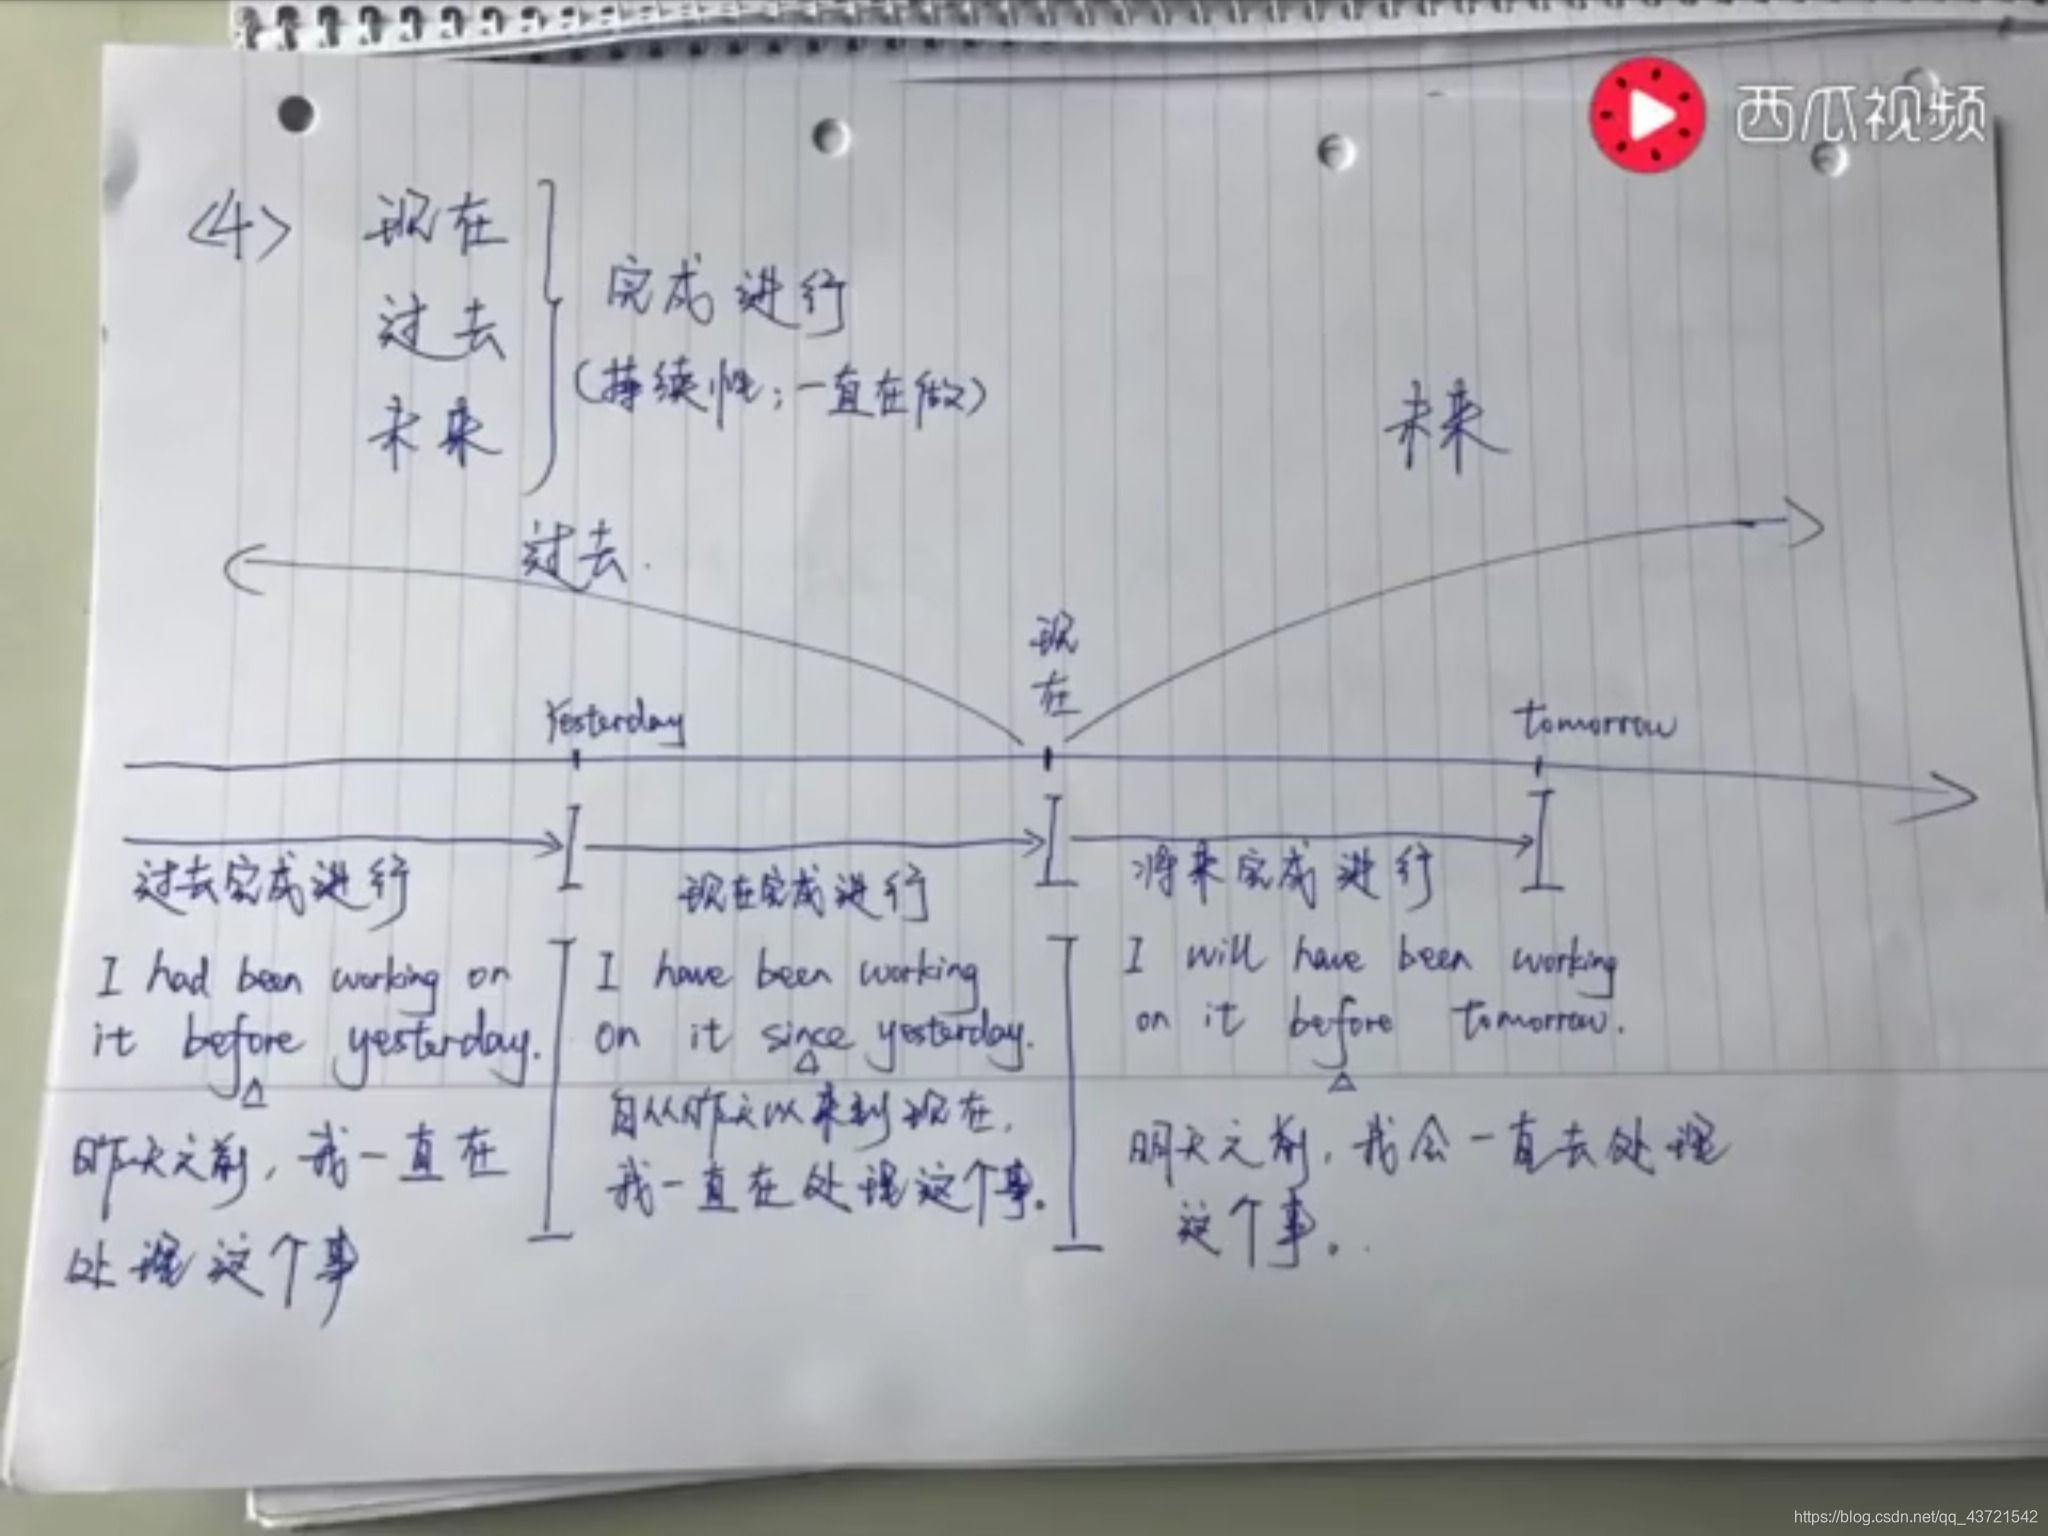 西瓜视频
<4> 现在
过去
未来
完成进行
(持续性;一直在做)
未来
过去.
现
在
Yesterday
tomorrow
过去完成进行
现在完成进行
将来完成进行
I had been working on
it before yesterday.
昨天之前,我一直在
处理这个事
I have been working
on it since yesterday.
自从昨天以来到现在,
我一直在处理这个事。
I will have been working
on it before tomorrow.
明天之前,我会一直去处理
这个事。
https://blog.csdn.net/qq_43721542